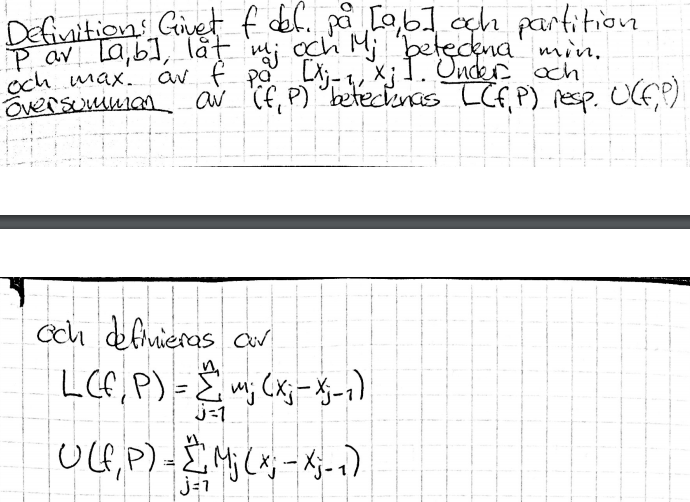 Definition: Givet f def. på [a,b] och partition
P av [a,b], låt mj och Mj beteckna min.
och max. av f på [xj-1, xj]. Under- och
översumman av (f,P) betecknas L(f,P) resp. U(f,P)
och definieras av
L(f,P) = Σ_{j=1}^{n} mj(xj-xj-1)
U(f,P) = Σ_{j=1}^{n} Mj(xj-xj-1)